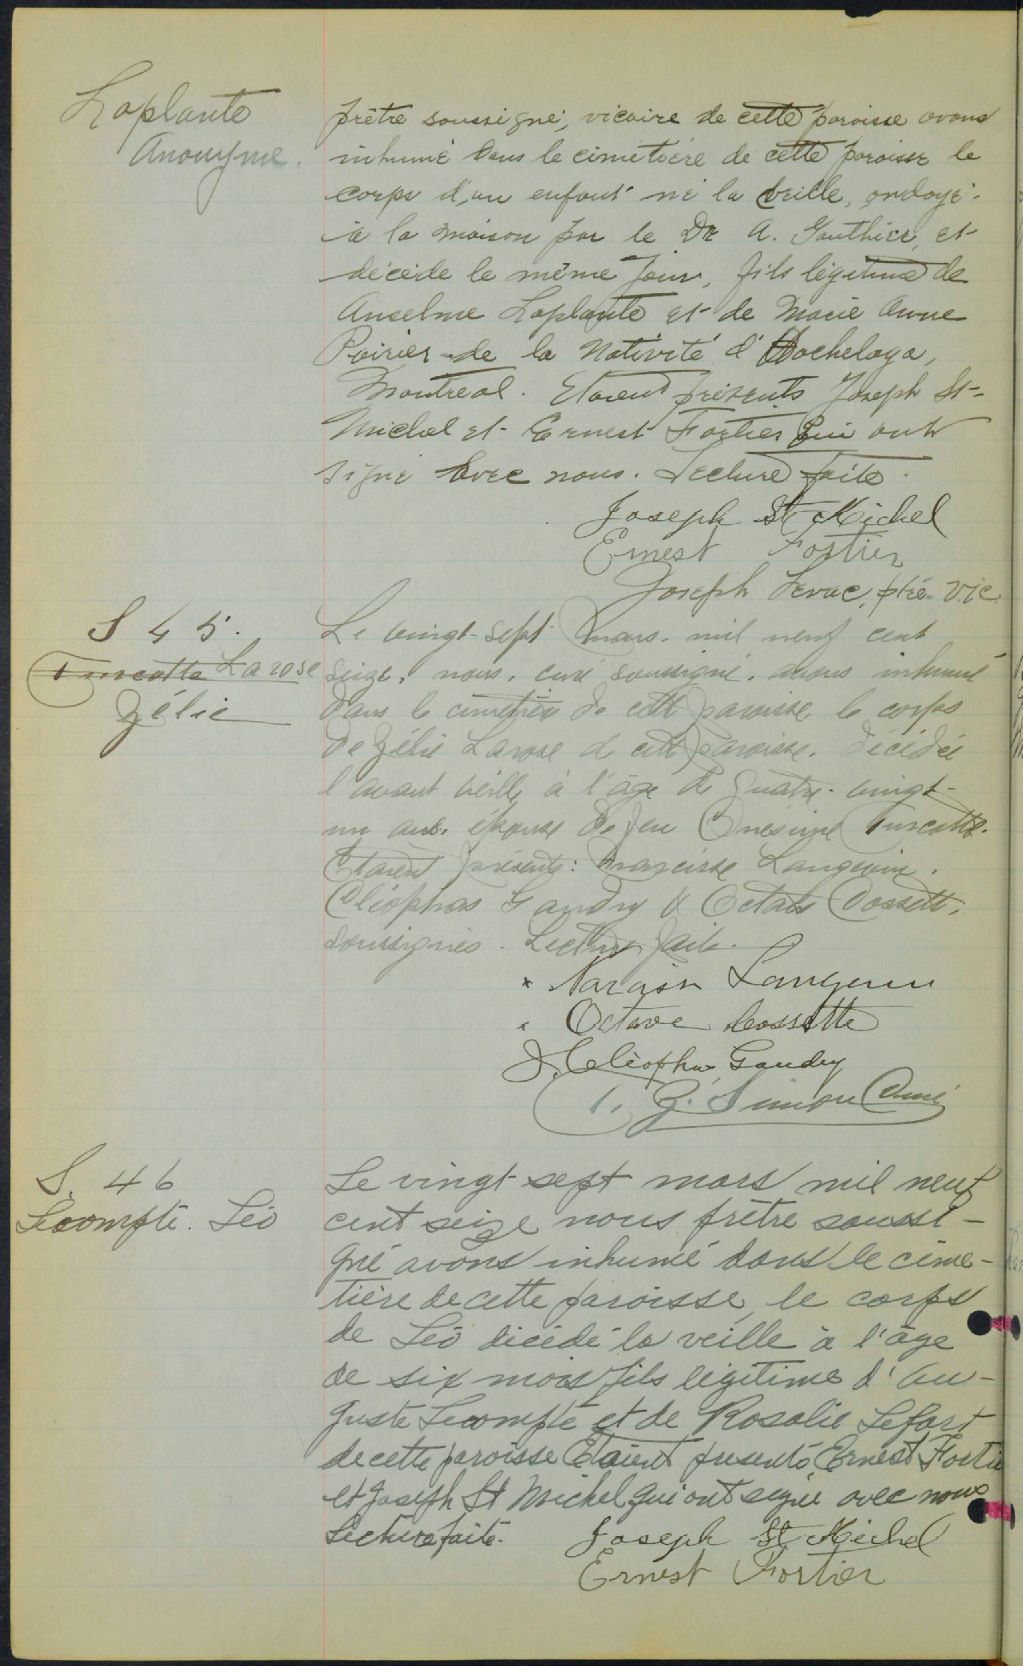 Laplante
Anonyme.
prêtre soussigné, vicaire de cette paroisse avons
inhumé dans le cimetière de cette paroisse le
corps d'un enfant né la veille, ondoyé
à la maison par le Dr A. Gauthier, et
décédé le même jour, fils légitime de
Anselme Laplante et de Marie Anne
Poirier de la Nativité d'Hochelaga,
Montréal. Etaient présents Joseph St-
Michel et Ernest Fortier qui ont
signé avec nous. Lecture faite.
Joseph St Michel
Ernest Fortier
Joseph Levac, ptre. vic
S 45.
Turcotte Larose
Zélie
Le vingt-sept mars mil neuf cent
seize, nous, curé soussigné, avons inhumé
dans le cimetière de cette paroisse le corps
de Zélie Larose de cette paroisse, décédée
l'avant veille à l'âge de quatre-vingt-
un ans, épouse de feu Onésime Turcotte.
Etaient présents: Narcisse Langevin,
Cléophas Gaudry & Octave Cossette,
soussignés. Lecture faite.
x Narcisse Langevin
x Octave Cossette
J. Cléophas Gaudry
G. Simon Curé
S. 46
Lecompte. Léo
Le vingt sept mars mil neuf
cent seize nous prêtre soussi-
gné avons inhumé dans le cime-
tière de cette paroisse, le corps
de Léo décédé la veille à l'âge
de six mois fils légitime d'Au-
guste Lecompte et de Rosalie Lefort
de cette paroisse Etaient présents Ernest Fortier
et Joseph St Michel qui ont signé avec nous
Lecture faite.
Joseph St Michel
Ernest Fortier